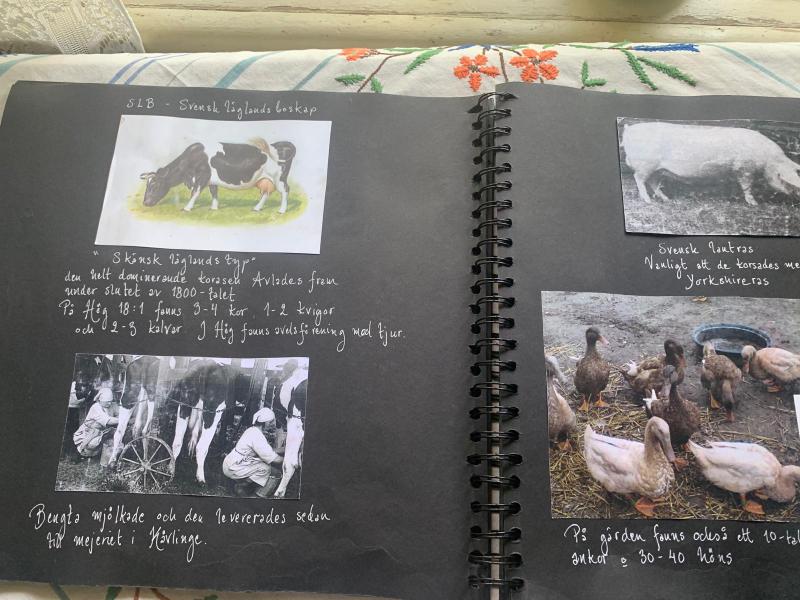 SLB - Svensk låglandsboskap
"Skånsk låglandstyp"
den helt dominerande korasen Avlades fram
under slutet av 1800-talet
På Hög 18:1 fanns 3-4 kor, 1-2 kvigor
och 2-3 kalvar. I Hög fanns avelsförening med tjur.
Bengta mjölkade och den levererades sedan
till mejeriet i Hävlinge.
Svensk lantras
Vanligt att de korsades me
Yorkshireras
På gården fanns också ett 10-tal
ankor o 30-40 höns